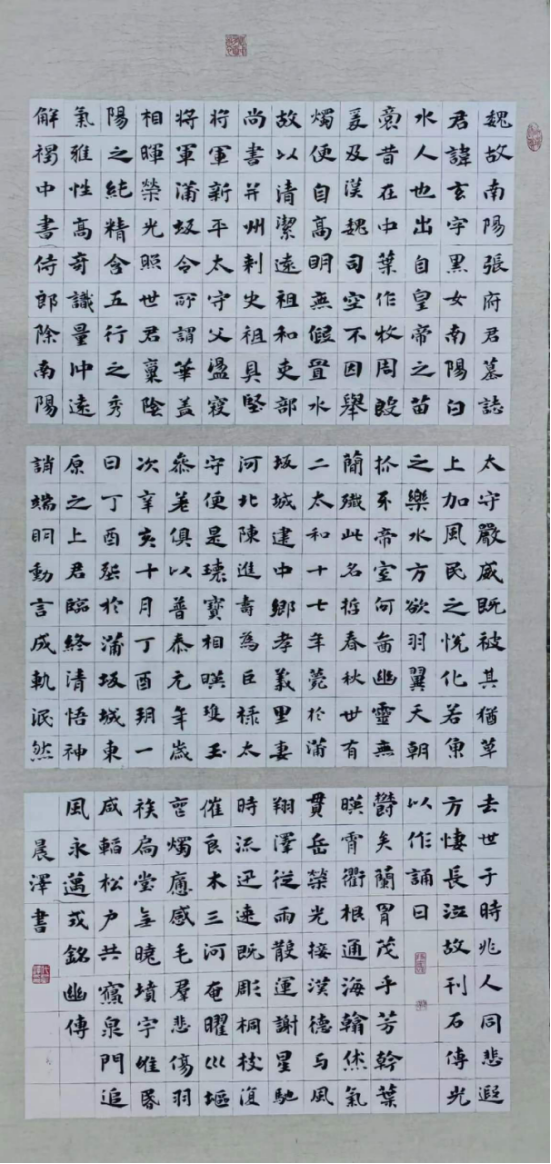 魏故南陽張府君墓誌
君諱玄字黑女南陽白
水人也出自皇帝之苗
裔昔在中葉作牧周殷
爰及漢魏司空不因舉
燭便自高明無假置水
故以清潔遠祖和吏部
尚書并州刺史祖具堅
將軍新平太守父盪寇
將軍蒲坂令所謂華蓋
相暉榮光照世君稟陰
陽之純精含五行之秀
氣雅性高奇識量沖遠
解褐中書侍郎除南陽
太守嚴威既被其猶草
上加風民之悅化若魚
之樂水方欲羽翼天朝
帝室何啚幽靈無
簡殲此名哲春秋世有
二太和十七年薨於蒲
坂城建中鄉孝義里妻
河北陳進壽為巨祿太
守便是瓌寶相暎瓊玉
叅差俱以普泰元年歲
次辛亥十月丁酉朔一
日丁酉塟於蒲坂城東
原之上君臨終清悟神
誚端明動言成軌泯然
去世于時兆人同悲遐
方悽長泣故刊石傳光
以作誦曰
鬱矣蘭胃茂乎芳幹葉
暎霄衢根通海翰烋氣
貫岳榮光接漢德与風
翔澤從雨散運謝星馳
時流迅速既彫桐枝復
催良木三河奄曜巛堰
燭感毛羣悲傷羽
族扃堂無曉墳宇唯昏
咸韜松户共寢泉門追
風永邁式銘幽傳
晨澤書